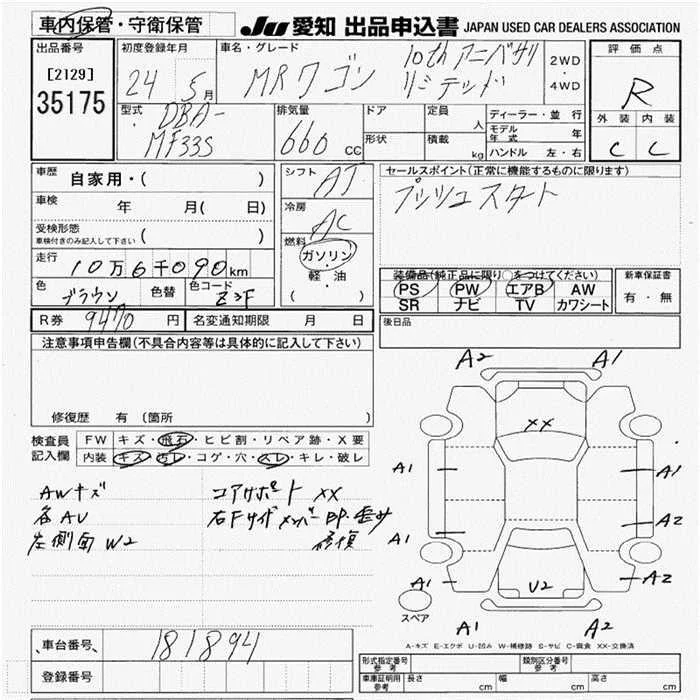 車内保管・守衛保管
JU 愛知 出品申込書 JAPAN USED CAR DEALERS ASSOCIATION
出品番号
[2129]
35175
初度登録年月
24年 5月
車名・グレード
MRワゴン 10thアニバサリ
リミテッド
2WD
・
4WD
評価点
R
外装 内装
C C
型式
DBA-
MF33S
排気量
660 CC
ドア
形状
定員 人
積載 kg
ディーラー・並行
モデル年式 年
ハンドル 左・右
車歴
自家用・( )
車検 年 月( 日)
受検形態
車検付きのみ記入して下さい ( )
走行
10万6千090km
色 ブラウン 色替 色コード Z3F
R券 9470 円 名変通知期限 月 日
シフト AT
冷房 AC
燃料
ガソリン
・
軽・油
( )
セールスポイント(正常に機能するものに限ります)
プッシュスタート
装備品(純正品に限り○をつけてください)
PS PW エアB AW
SR ナビ TV カワシート
新車保証書
有・無
後日品
注意事項申告欄(不具合内容等は具体的に記入して下さい)
修復歴 有 (箇所
検査員
記入欄
FW キズ・飛石・ヒビ割・リペア跡・X要
内装 キズ・汚レ・コゲ・穴・スレ・キレ・破レ
AWキズ
各AU
左側面W2
コアサポート XX
右Fサイドメンバー BP・歪み
修復
A2 A1
XX
A1 A1
A2
A1
A1 U2 A2
スペア
A1 A2
A-キズ E-エクボ U-凹み W-補修跡 S-サビ C-腐食 XX-交換済
車台番号 181894
登録番号
形式指定番号
参考
類別区分番号
参考
車庫証明用
参考
長さ cm 幅 cm 高さ cm